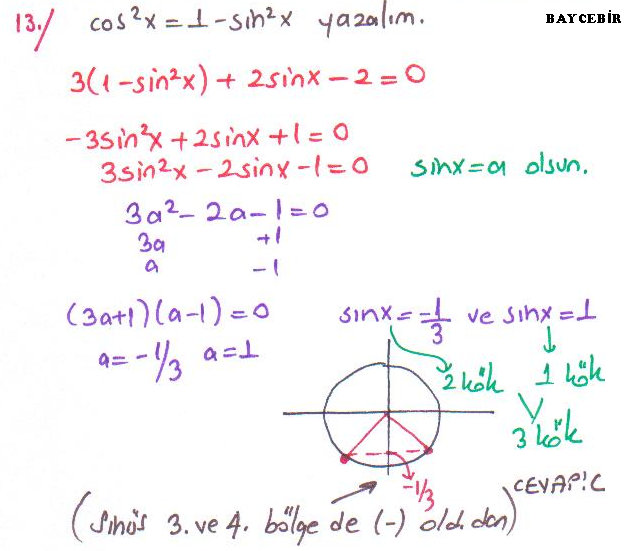 13./ cos²x = 1 - sin²x yazalım.
BAYCEBİR
3(1 - sin²x) + 2sinx - 2 = 0
-3sin²x + 2sinx + 1 = 0
3sin²x - 2sinx - 1 = 0 sinx = a olsun.
3a² - 2a - 1 = 0
3a +1
a -1
(3a+1)(a-1) = 0 sinx = -1/3 ve sinx = 1
a = -1/3 a = 1
2 kök 1 kök
3 kök
-1/3
CEVAP: C
(Sinüs 3. ve 4. bölge de (-) old. den)